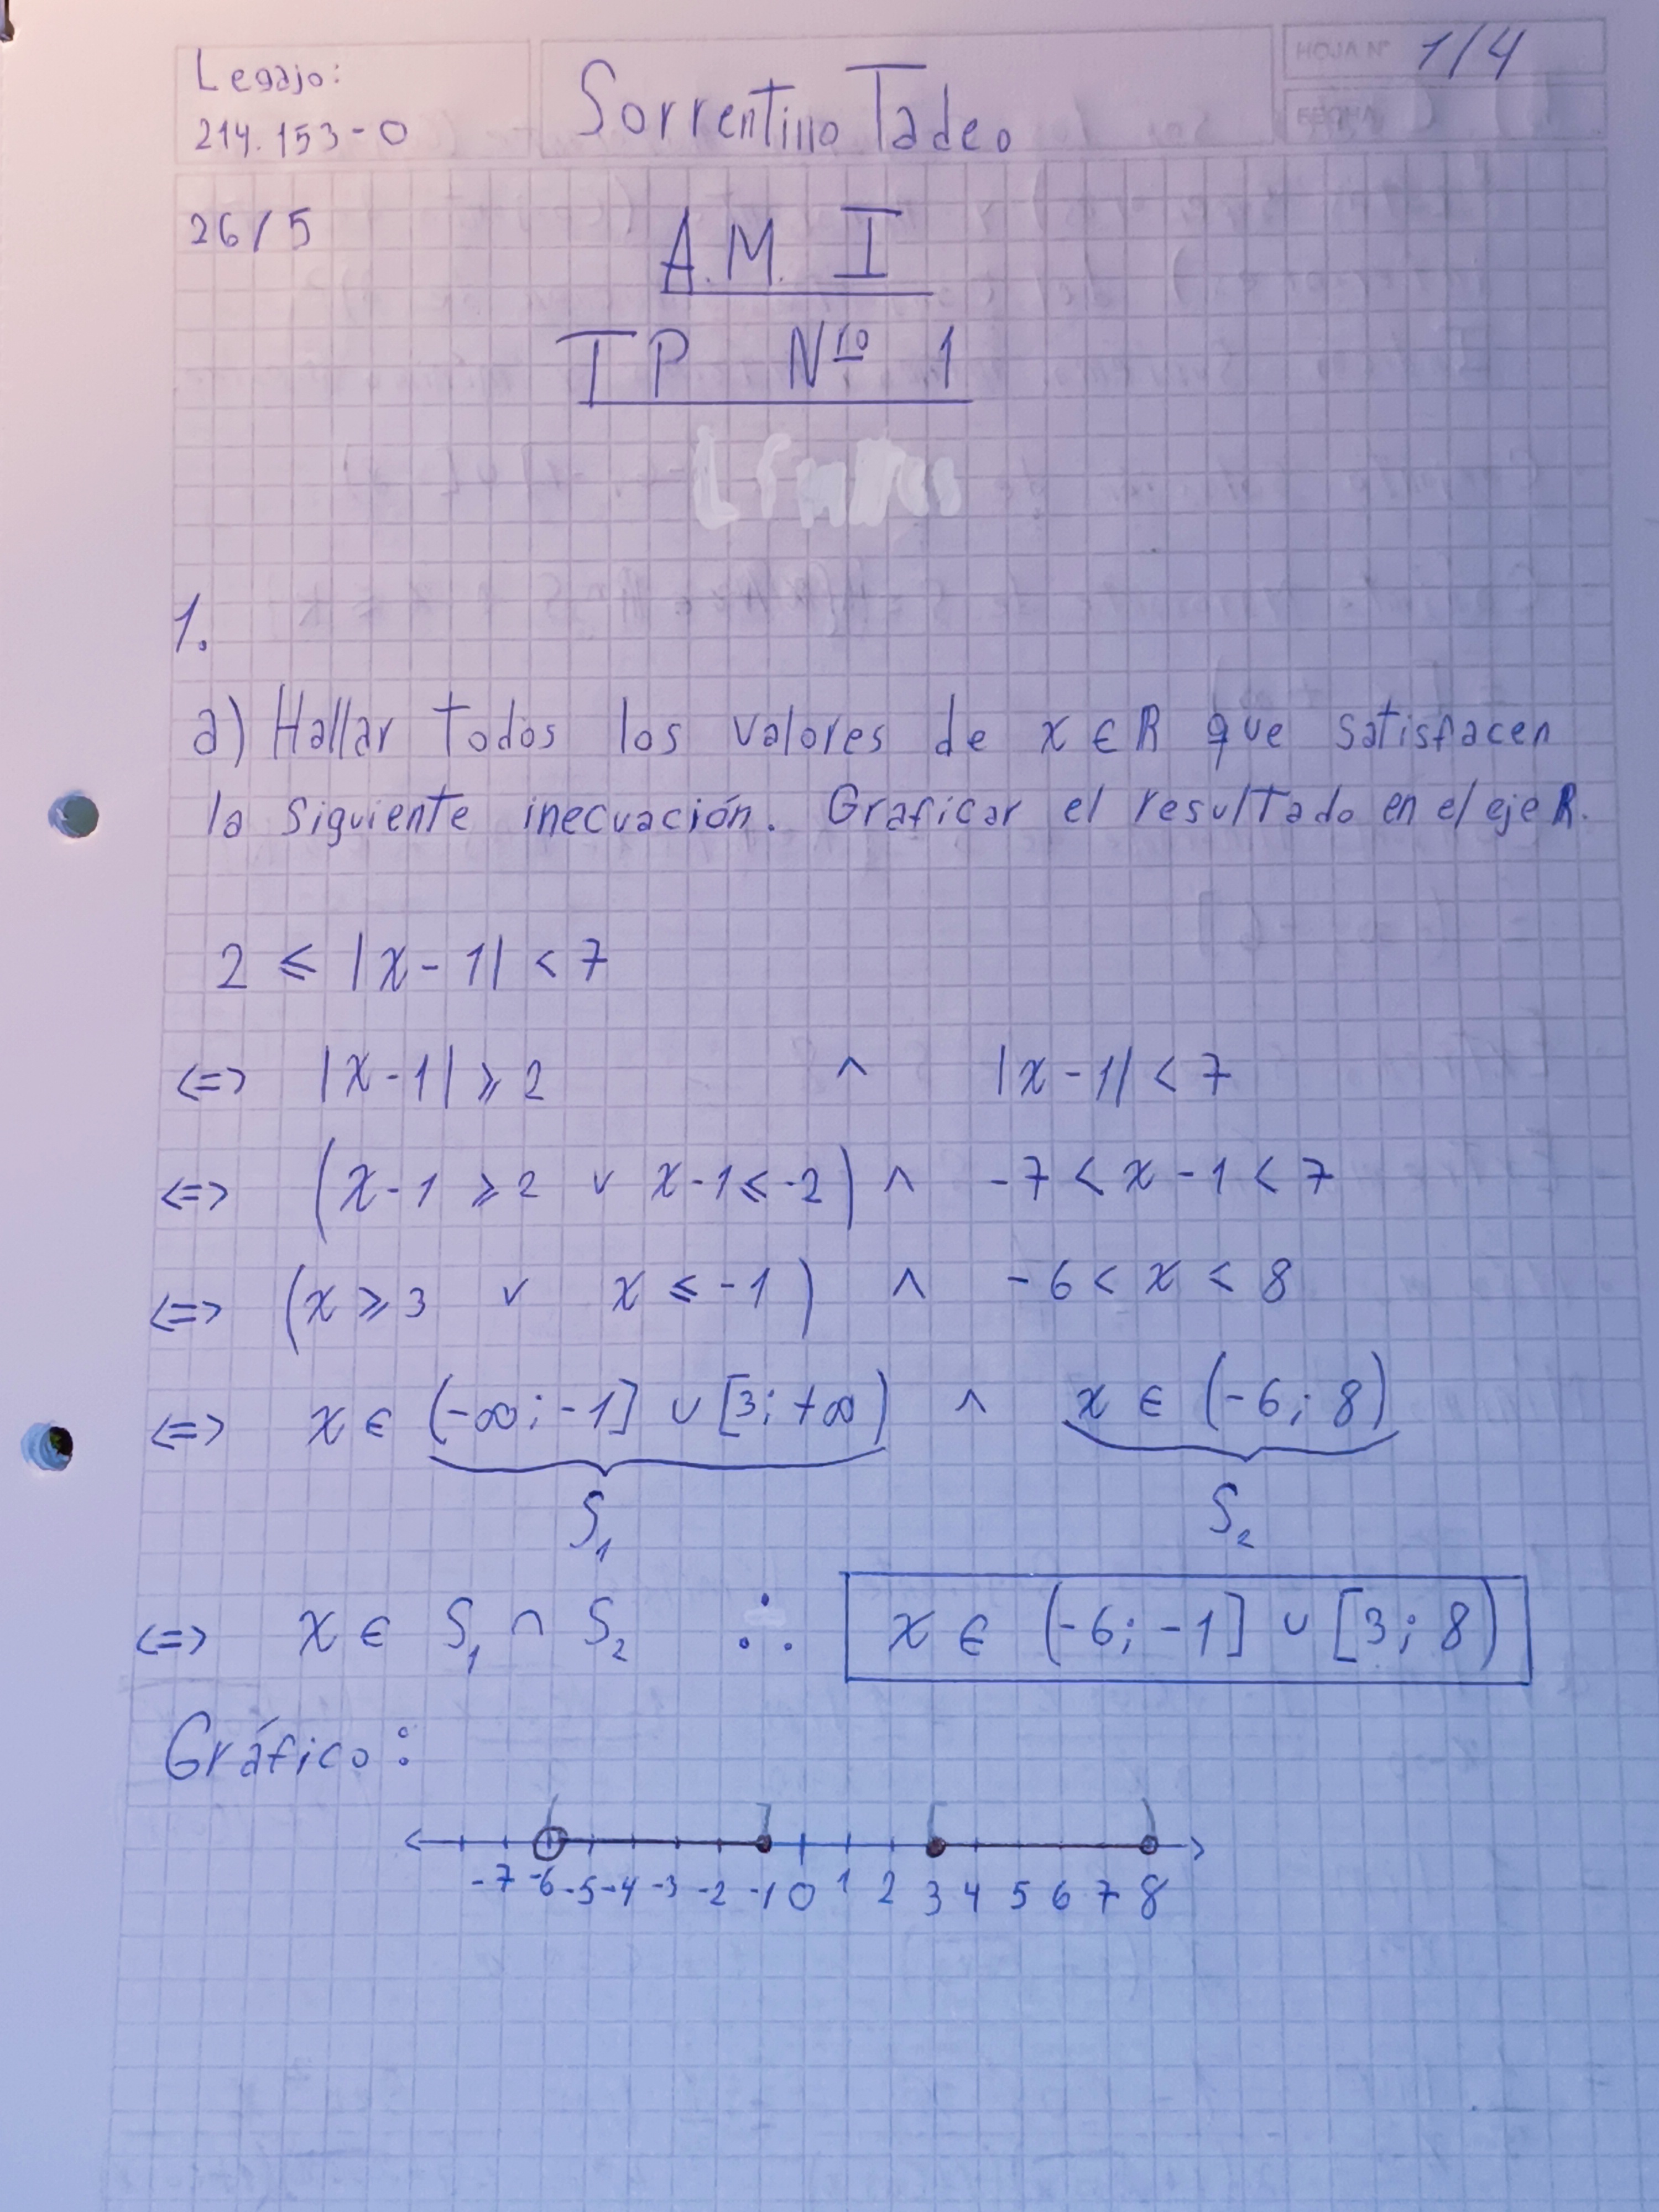 Legajo:
214.153-0
Sorrentino Tadeo
HOJA Nº 1/4
FECHA
26/5
A.M. I
TP Nro 1
1.
a) Hallar todos los valores de x ∈ R que satisfacen
la siguiente inecuación. Graficar el resultado en el eje R.
2 ⩽ |x - 1| < 7
<=> |x - 1| ⩾ 2 ∧ |x - 1| < 7
<=> (x - 1 ⩾ 2 ∨ x - 1 ⩽ -2) ∧ -7 < x - 1 < 7
<=> (x ⩾ 3 ∨ x ⩽ -1) ∧ -6 < x < 8
<=> x ∈ (-∞; -1] ∪ [3; +∞) ∧ x ∈ (-6; 8)
S₁ S₂
<=> x ∈ S₁ ∩ S₂ ∴ x ∈ (-6; -1] ∪ [3; 8)
Gráfico:
( ] [ )
-7 -6 -5 -4 -3 -2 -1 0 1 2 3 4 5 6 7 8